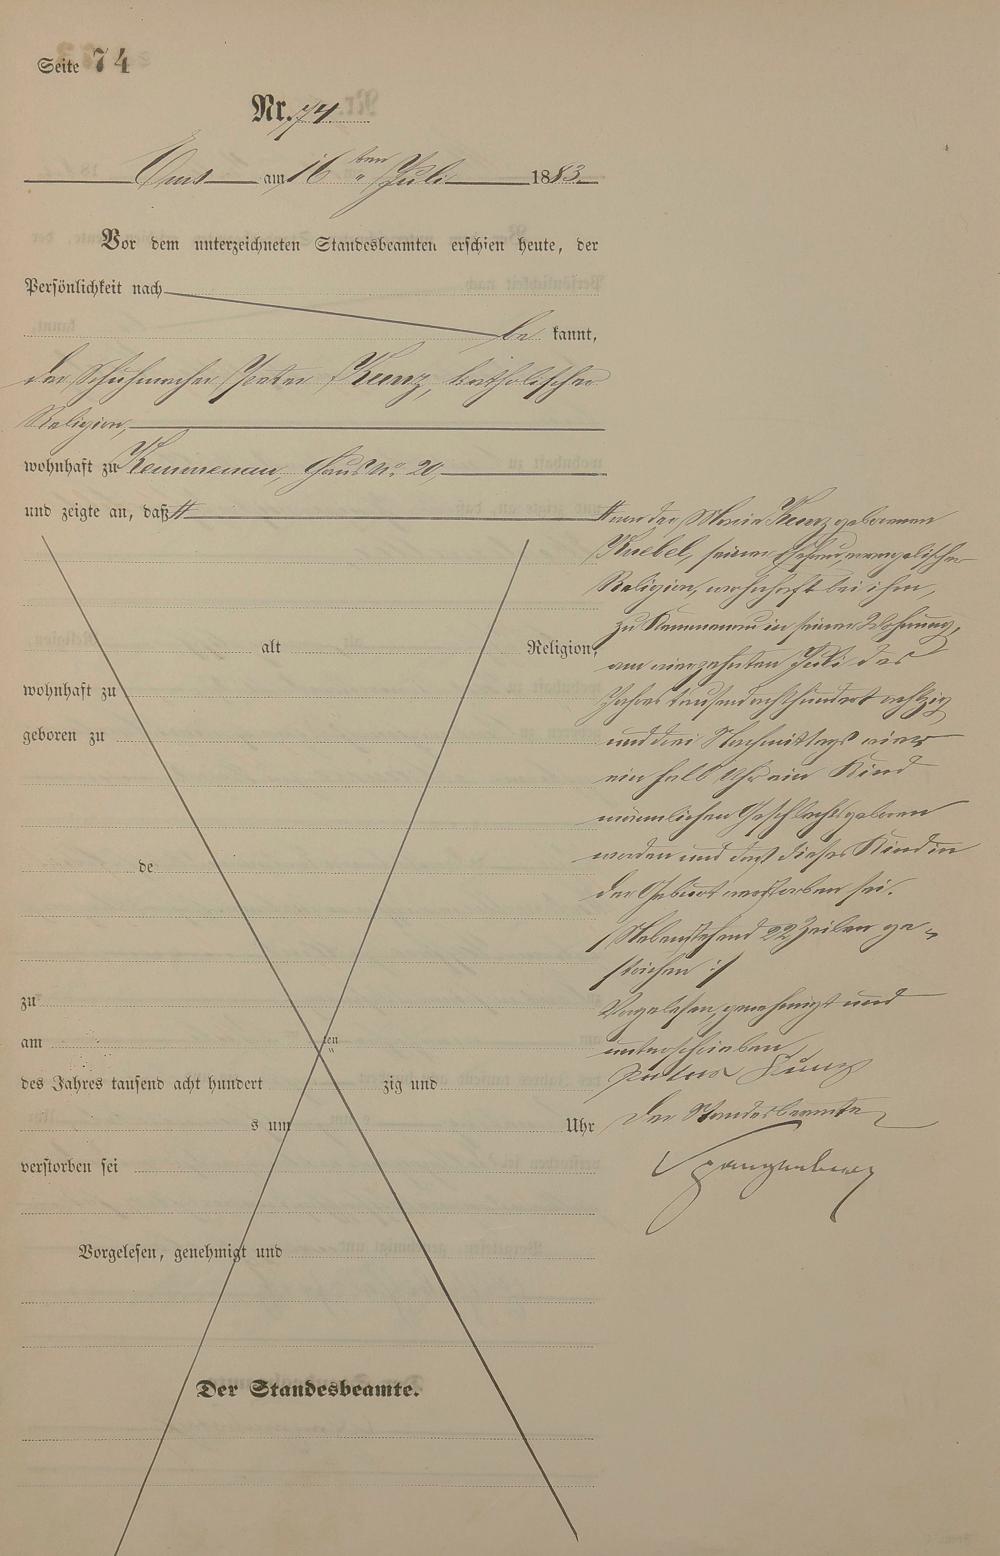 Seite 74
Nr. 74
Ems am 16 ten Juli 1883.
Vor dem unterzeichneten Standesbeamten erschien heute, der
Persönlichkeit nach
be kannt,
der Schuhmacher Peter Kunz, katholischer
Religion,
wohnhaft zu Kemmenau, Haus No 20,
und zeigte an, daß #
# von der Maria Kunz geborenen
Knebel, seiner Ehefrau, evangelischer
Religion, wohnhaft bei ihm,
zu Kemmenau in seiner Wohnung,
am vierzehnten Juli des
Jahres tausend achthundert achtzig
und drei Nachmittags
ein halb Uhr ein Kind
männlichen Geschlechts geboren
worden und daß dieses Kind in
der Geburt verstorben sei.
/: Nebenstehend 22 Zeilen ge-
strichen :/
Vorgelesen, genehmigt und
unterschrieben
Peter Kunz
Der Standesbeamte
Spangenberg
alt Religion,
wohnhaft zu
geboren zu
de
zu
am ten
des Jahres tausend acht hundert zig und
s um Uhr
verstorben sei
Vorgelesen, genehmigt und
Der Standesbeamte.